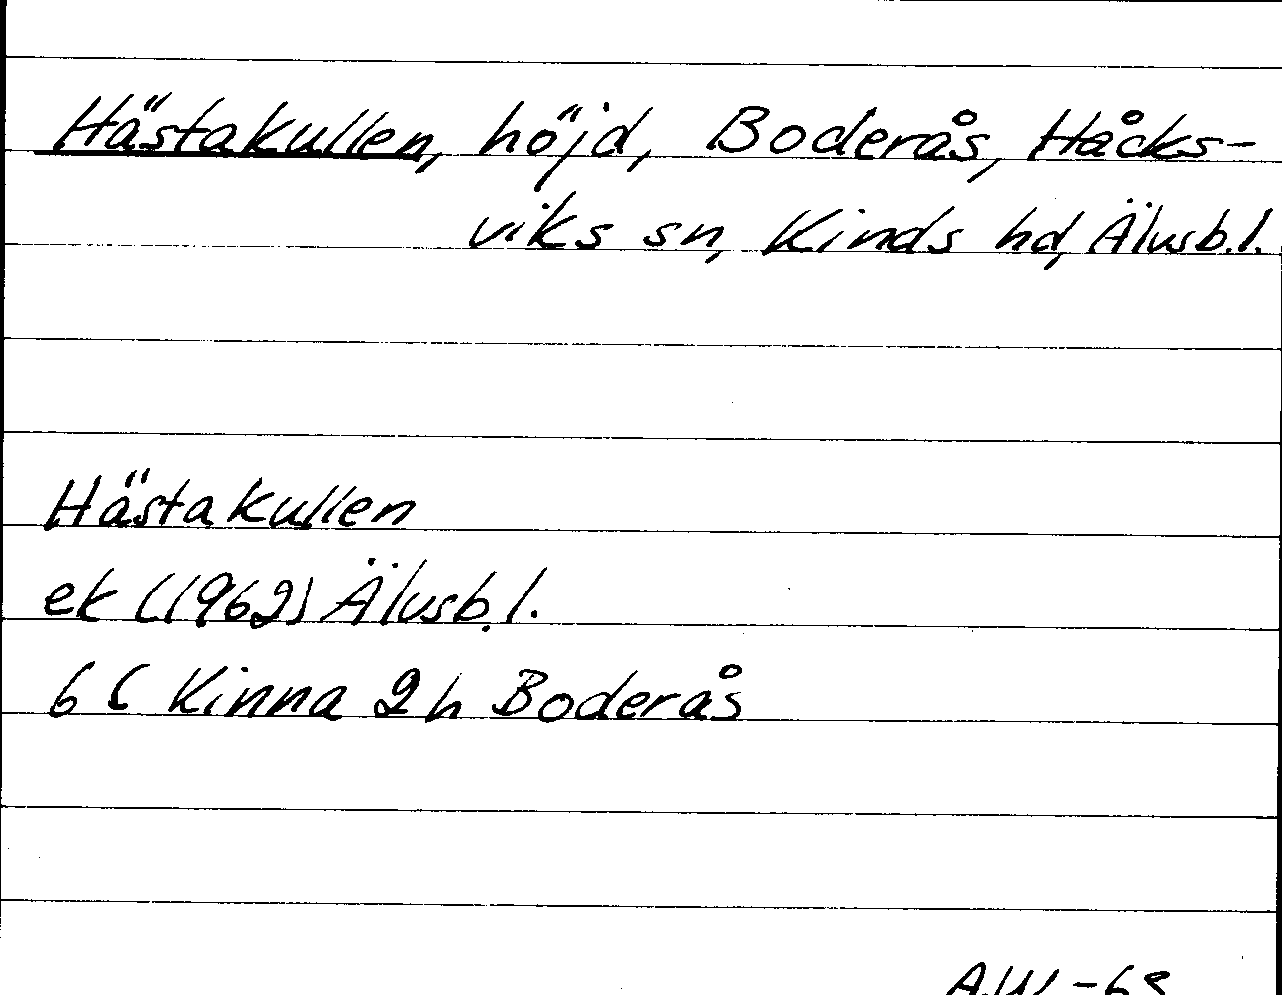 Hästakullen, höjd, Boderås, Håcks-
viks sn, Kinds hd, Älvsb.l.
Hästakullen
ek (1962) Älvsb.l.
6 C Kinna 2h Boderås